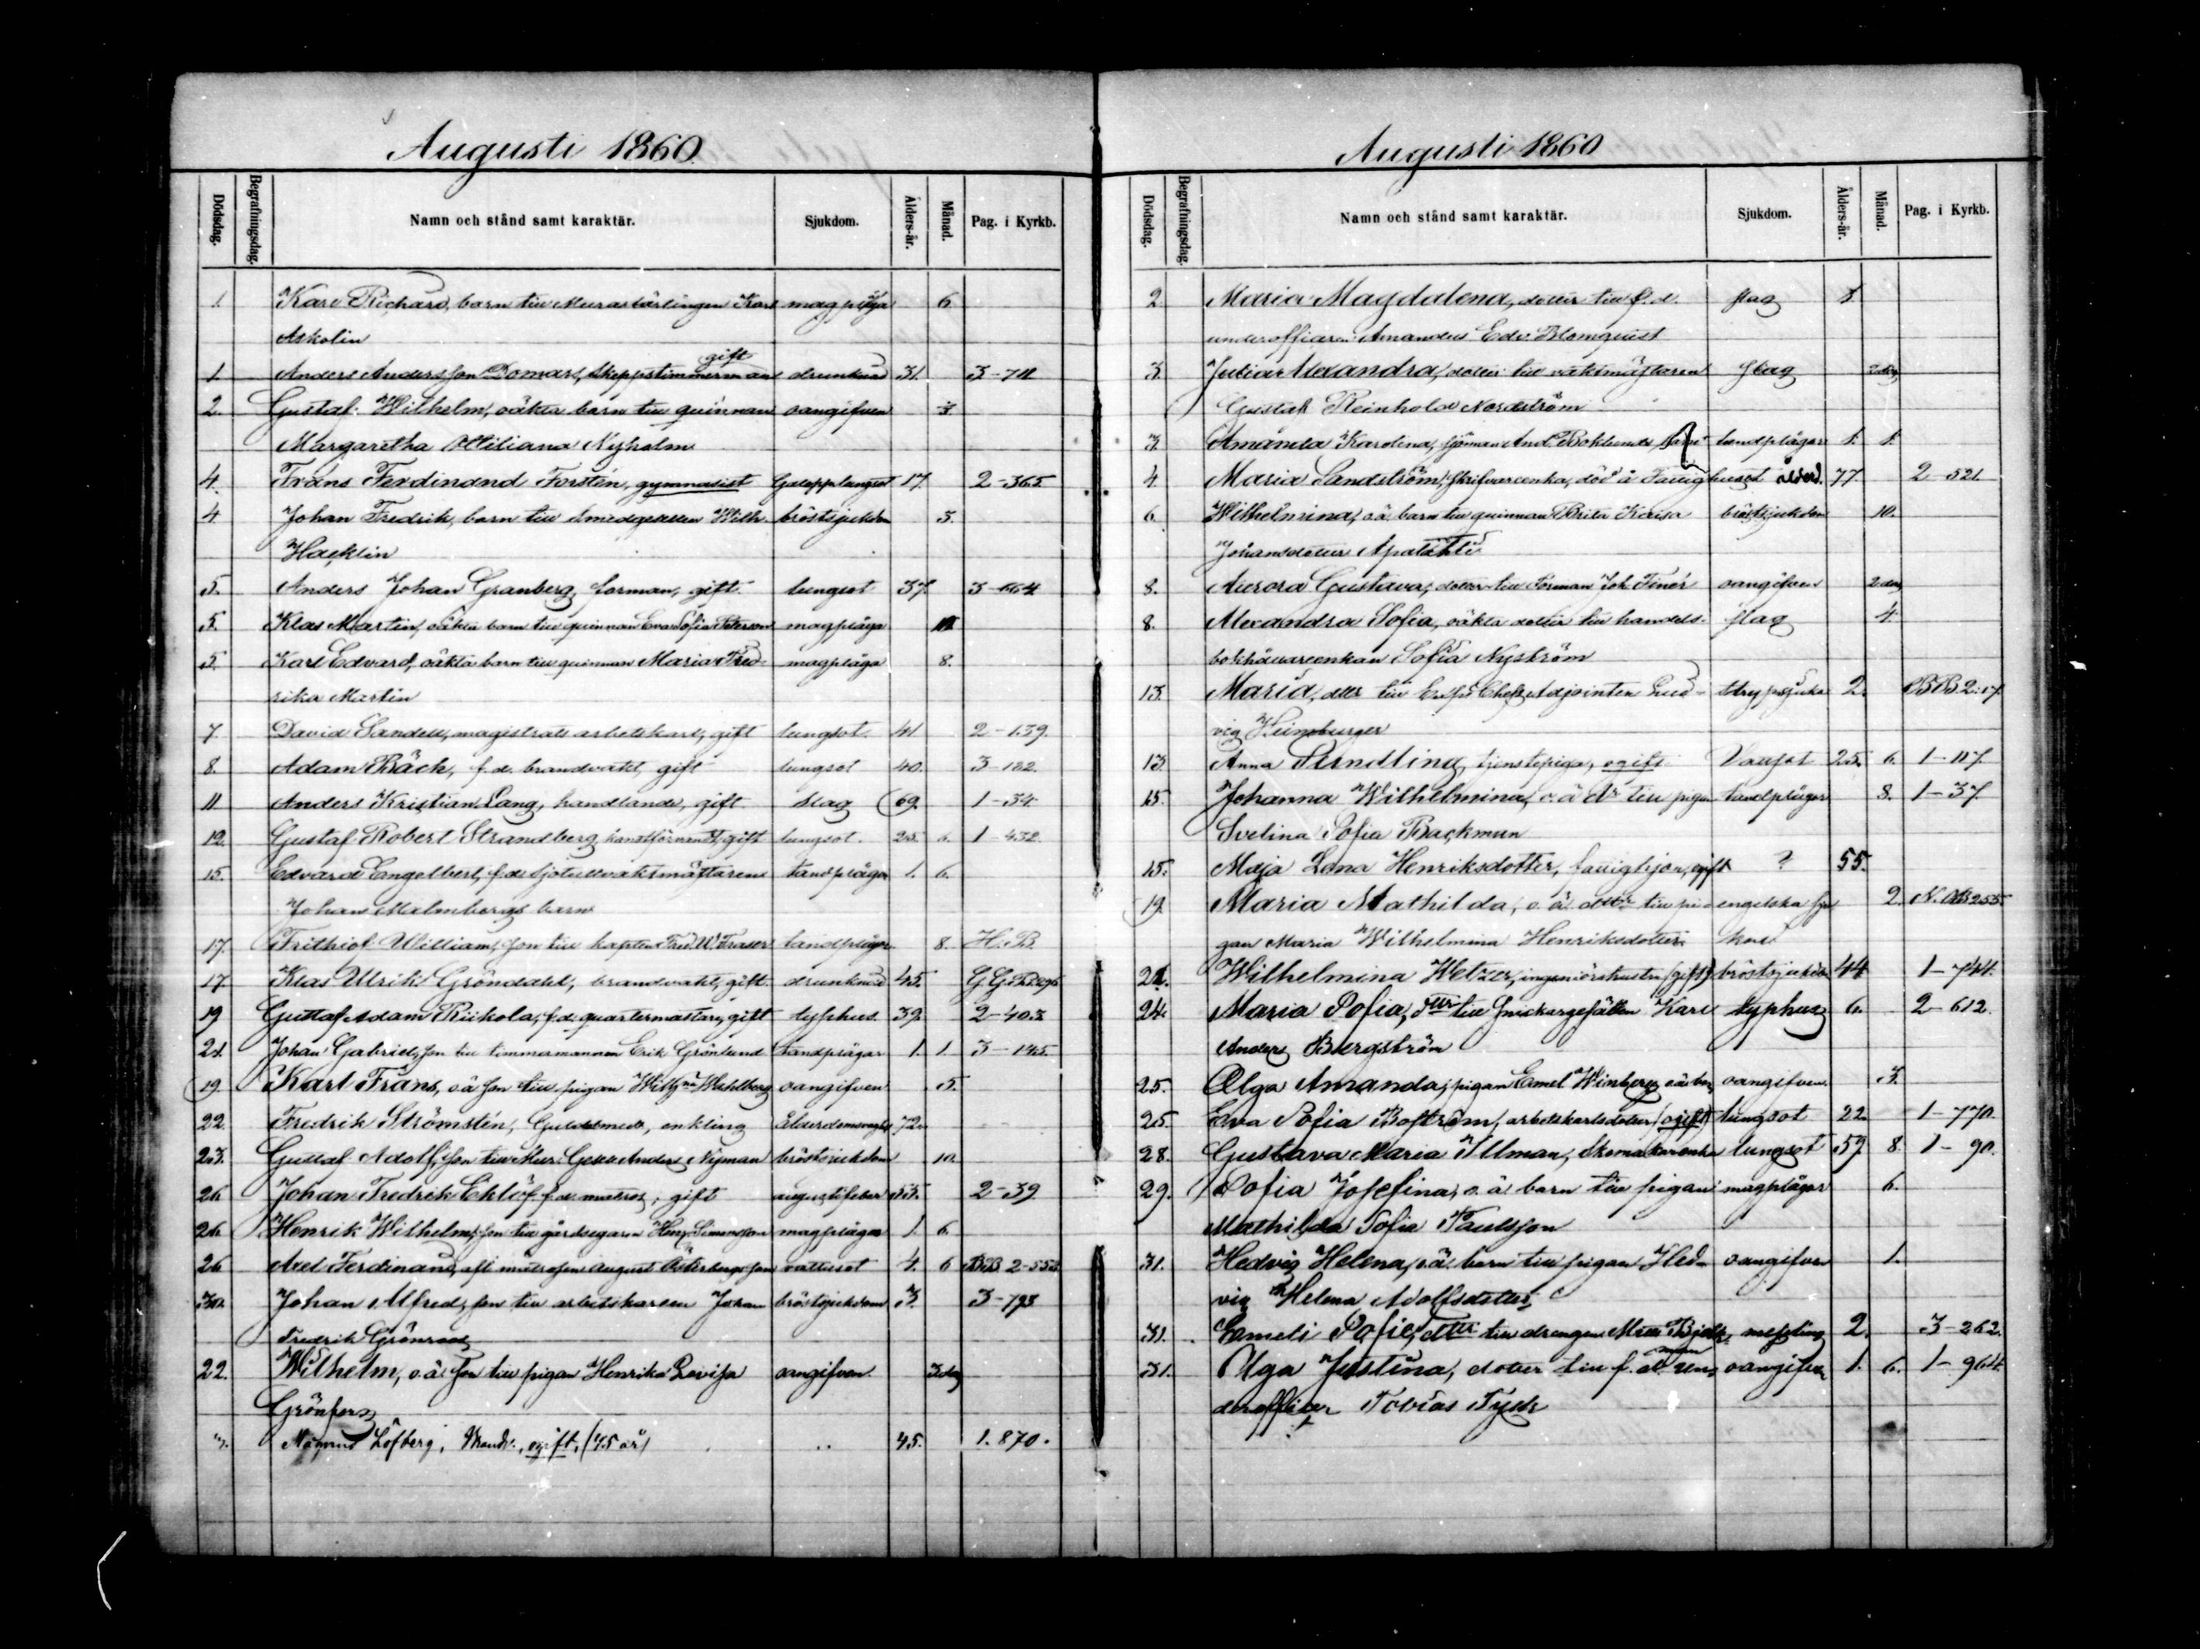 Augusti 1860
Dödsdag. Begrafningsdag. Namn och stånd samt karaktär. Sjukdom. Ålders-år. Månad. Pag. i Kyrkb.
1. Karl Richard, barn till Murarlärlingen Karl magplåga 6.
Askolin
1. Anders Andersson Domars, Skeppstimmerman gift drunknad 31. 3-711
2. Gustaf Wilhelm, oäkta barn till quinnan oangifven 3
Margaretha Ottiliana Nyholm
4. Frans Ferdinand Forstén, gymnasist Galopplungsot 17. 2-365
4 Johan Fredrik, barn till Smedgesellen Wilh. bröstsjukdom 3.
Hacklin
5. Anders Johan Granberg, forman, gift. lungsot 37. 3-664
5. Klas Martin, oäkta barn till quinnan Eva Sofia Peterson magplåga
5. Karl Edvard, oäkta barn till quinnan Maria Fred- magplåga 8.
rika Martin
7 David Sandell, magistrats arbetskarl, gift lungsot. 41 2-139.
8. Adam Bäck, f.d. brandvakt, gift lungsot 40. 3-182.
11 Anders Kristian Lang, handlande, gift. slag 69. 1-34
12. Gustaf Robert Strandberg, gift lungsot. 25. 6. 1-432.
15. Edvard Engelbert, f.d. Sjötullvaktmästarens tandplågor 1. 6.
Johan Malmbergs barn
17. Frithiof William, son till kapten Fred. W. Fraser tandplågor 8. H.B.
17. Klas Ulrik Gröndahl, brandvakt, gift. drunknad 45.
19 Gustaf Adam Riikola, f.d. quartermästare, gift typhus 39. 2-403
21. Johan Gabriel, son till timmermannen Erik Grönlund tandplågor 1. 1. 3-145.
19. Karl Frans, o.ä son till pigan Wilh:na Wahlberg oangifven 5.
22. Fredrik Strömstén, Guldsmed, enkling Ålderdomssvaghet 72.
23. Gustaf Adolf, son till Mur. Gesell Anders Nyman bröstsjukdom 10.
26 Johan Fredrik Eklöf f.d. matros, gift augustifeber 55. 2-39
26. Henrik Wilhelm, son till gårdsegaren Henr. Simonsson magplågor 1. 6.
26 Axel Ferdinand, afl. matrosen August Österbergs son vattusot 4. 6 BB 2-552
30. Johan Alfred, son till arbetskarlen Johan bröstsjukdom 3. 3-793
Fredrik Grönroos
22. Wilhelm, o.ä. son till pigan Henrika Lovisa oangifven. 3 dag
Grönfors
". Magnus Löfberg, Brandv., ogift, (45 år) .. 45. 1. 870.
Augusti 1860
Dödsdag. Begrafningsdag. Namn och stånd samt karaktär. Sjukdom. Ålders-år. Månad. Pag. i Kyrkb.
2 Maria Magdalena, dotter till f.d. slag
underofficeren Amandus Edv. Blomquist
3. Julia Alexandra, dotter till vaktmästaren slag 2 dag
Gustaf Reinhold Nordström
3. Amanda Karolina, sjöman And. Boklunds barn tandplågor 1. 1.
4. Maria Sandström, Skrifvareenka, död å Fattighuset ålderd. 77. 2-521.
6. Wilhelmina, o.ä. barn till quinnan Brita Kaisa bröstsjukdom 10.
Johansdotter Apalahti
8. Aurora Gustava, dotter till Forman Joh. Finér oangifven 2 dag
8. Alexandra Sofia, oäkta dotter till handels- slag 4.
bokhållareenkan Sofia Nyström
13. Maria, dotter till Chefs Adjointen Lud- strypsjuka 2. BB 2:17.
vig Heimburger
13. Anna Sundling, tjenstepiga, ogift Vattsot 25. 6. 1-117.
15. Johanna Wilhelmina, o.ä. d:r till pigan tandplågor 8. 1-37.
Evelina Sofia Backman
15. Maja Lena Henriksdotter, fattighjon, gift ? 55.
19. Maria Mathilda, o.ä. dotter till pi- engelska sju 2.
gan Maria Wilhelmina Henriksdotter kan
Wilhelmina Wetzer, ingeniörshustru (gift) bröstsjukdom 44. 1-744.
24. Maria Sofia, dotter till Snickargesällen Karl typhus 6. 2-612.
Anders Bergström
25. Olga Amanda, pigan Emel. Winberg o.ä. bn oangifven. 3.
25. Eva Sofia Boström, arbetskarlsdotter (ogift) lungsot 22 1-770.
28. Gustava Maria Tillman, Skomakarenka lungsot 59. 8. 1-90.
29. Sofia Josefina, o.ä. barn till pigan magplågor 6.
Mathilda Sofia Paulsson
31. Hedvig Helena, o.ä. barn till pigan Hed- oangifven 1.
vig Helena Adolfsdotter
31. Emeli Sofia, dotter till drengen messling 2. 3-262.
31. Olga Justina, dotter till f.d. un- oangifven 1. 6. 1-964.
derofficer Tobias Tysk